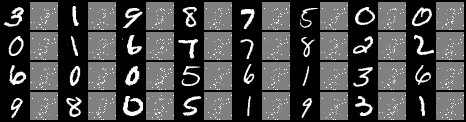 3 1 9 8 7 5 0 0
0 1 6 7 7 8 2 2
6 0 0 5 6 1 3 6
9 8 0 5 1 9 3 1